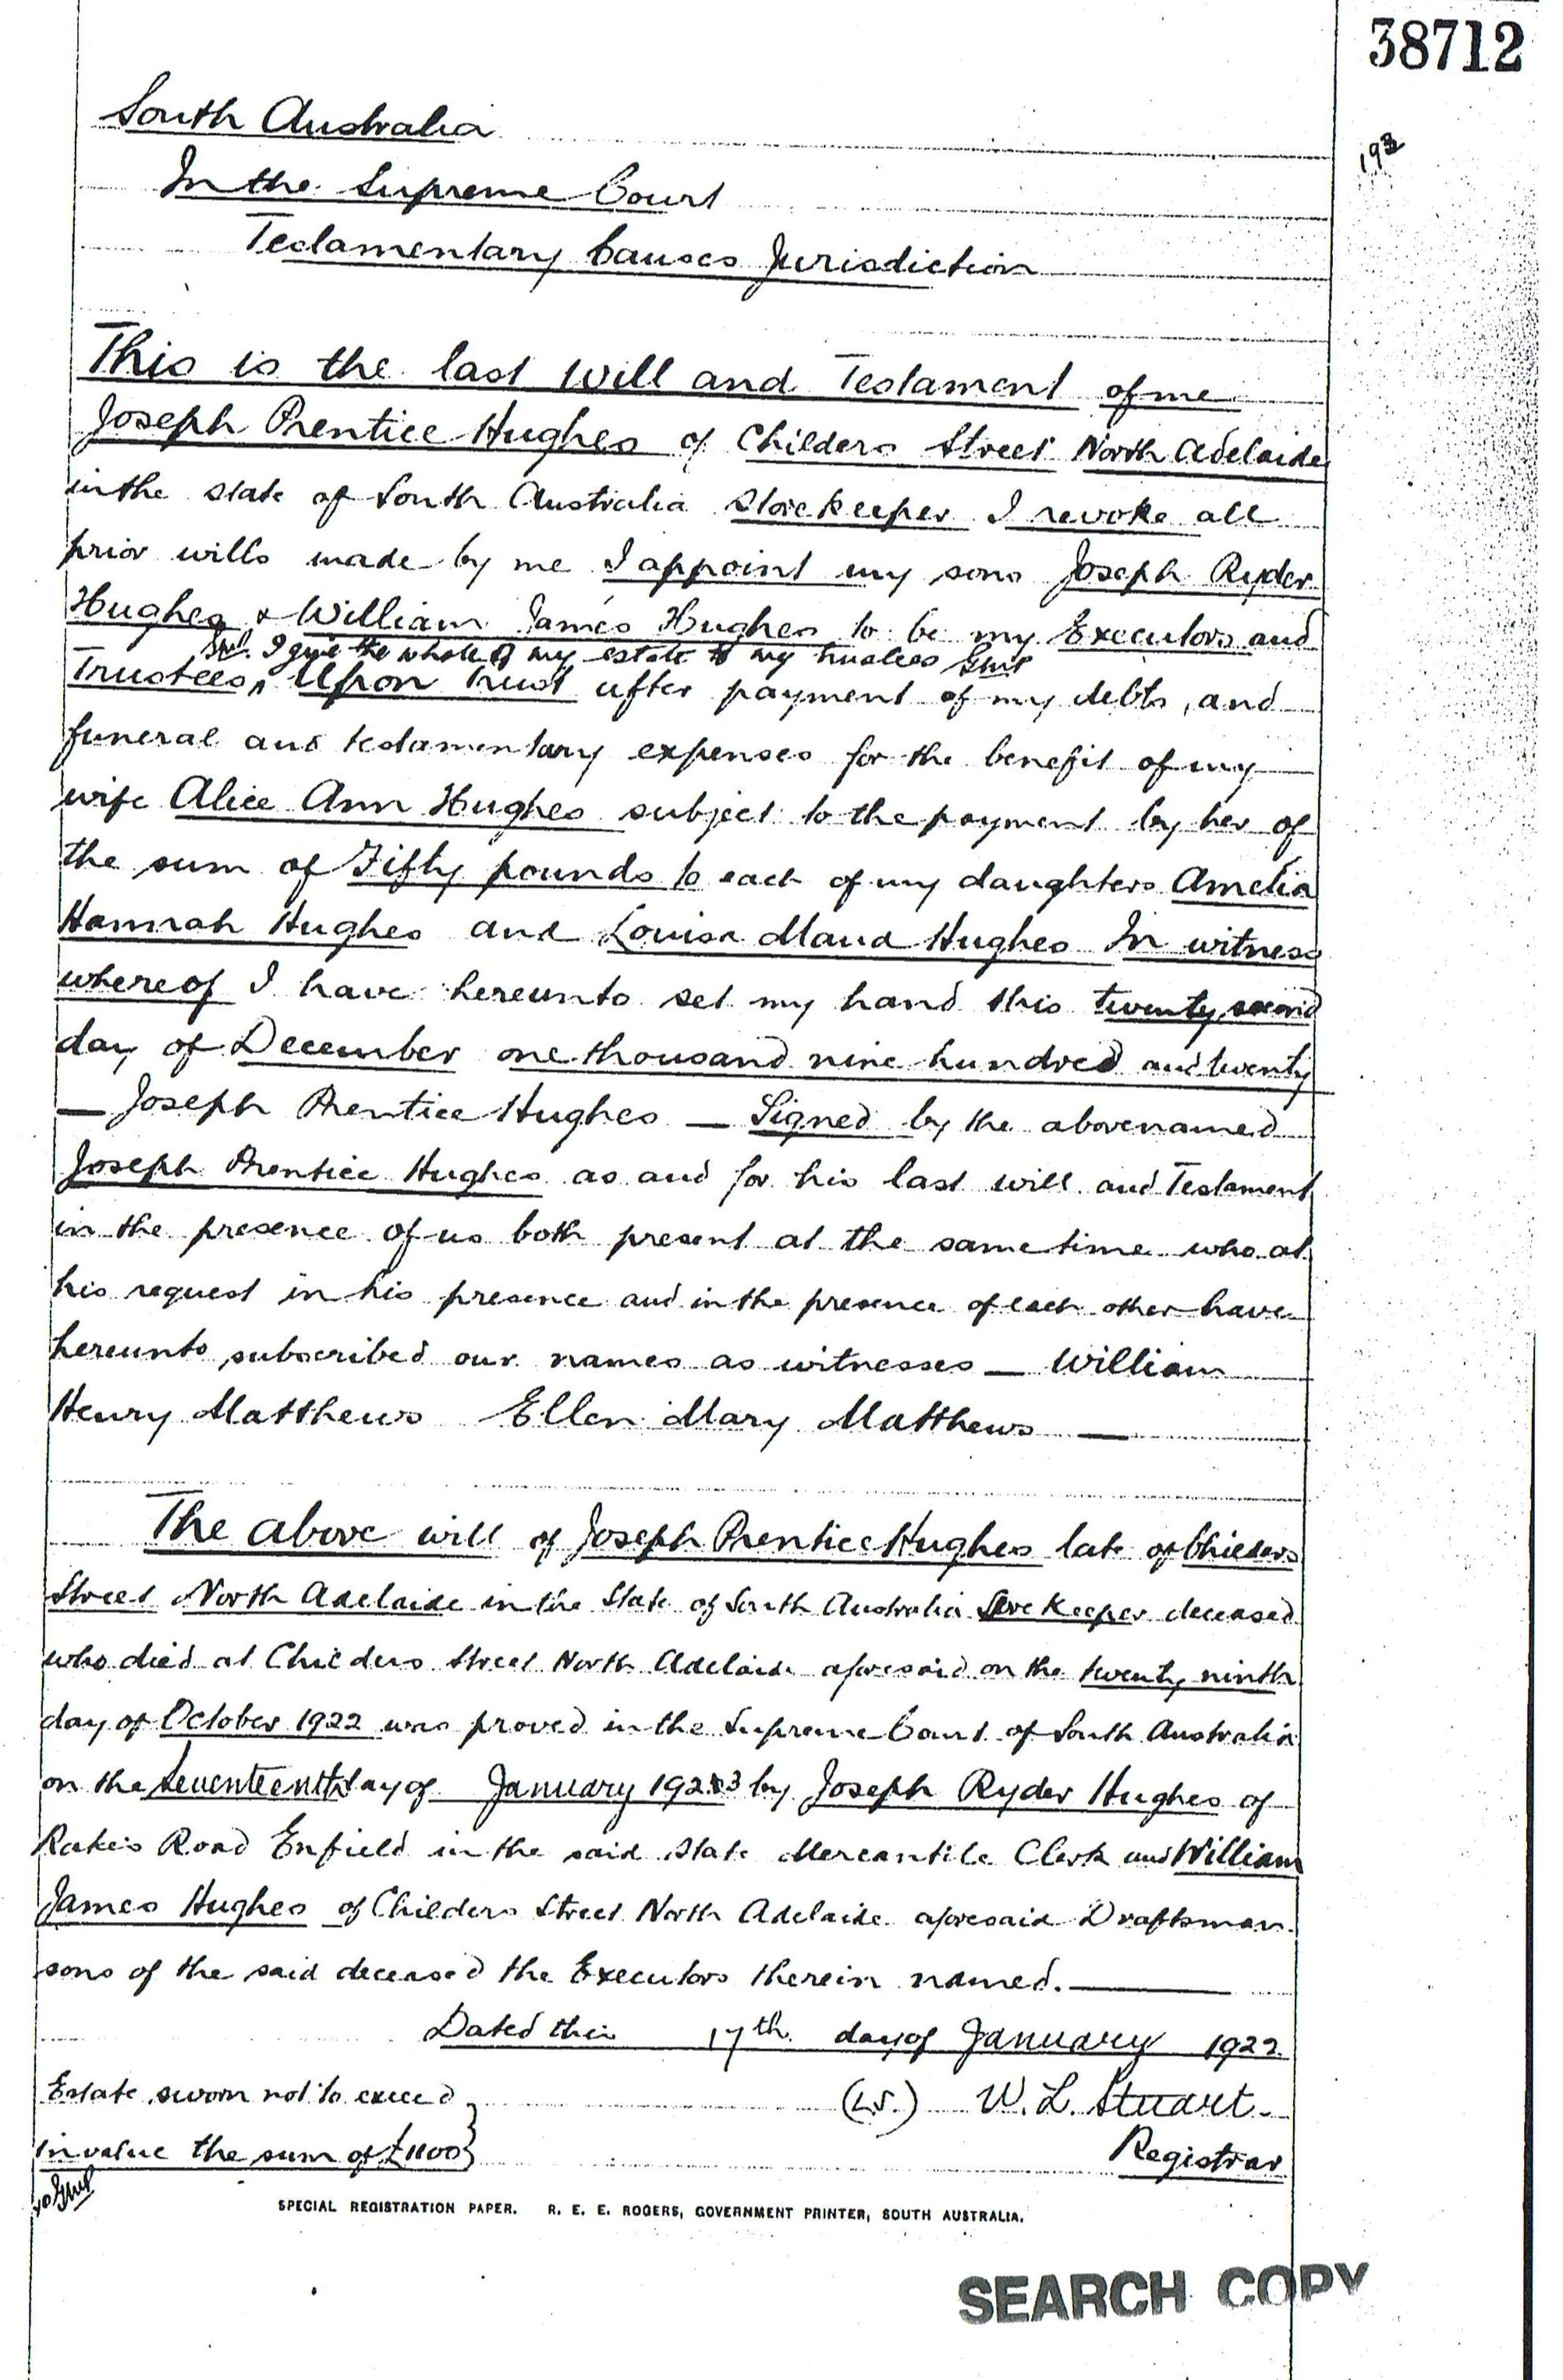 38712
193
South Australia
In the Supreme Court
Testamentary Causes Jurisdiction
This is the last Will and Testament of me
Joseph Prentice Hughes of Childers Street North Adelaide
in the state of South Australia Storekeeper I revoke all
prior wills made by me I appoint my sons Joseph Ryder
Hughes & William James Hughes to be my Executors and
I give the whole of my estate to my trustees
Trustees, Upon Trust after payment of my debts, and
funeral and testamentary expenses for the benefit of my
wife Alice Ann Hughes subject to the payment by her of
the sum of Fifty pounds to each of my daughters Amelia
Hannah Hughes and Louisa Maud Hughes In witness
whereof I have hereunto set my hand this twenty second
day of December one thousand nine hundred and twenty
— Joseph Prentice Hughes — Signed by the abovenamed
Joseph Prentice Hughes as and for his last will and Testament
in the presence of us both present at the same time who at
his request in his presence and in the presence of each other have
hereunto subscribed our names as witnesses — William
Henry Matthews Ellen Mary Matthews —
The above will of Joseph Prentice Hughes late of Childers
Street North Adelaide in the State of South Australia Storekeeper deceased
who died at Childers Street North Adelaide aforesaid on the twenty ninth
day of October 1922 was proved in the Supreme Court of South Australia
on the Seventeenth day of January 1923 by Joseph Ryder Hughes of
Rakes Road Enfield in the said State Mercantile Clerk and William
James Hughes of Childers Street North Adelaide aforesaid Draftsman
sons of the said deceased the Executors therein named. —
Dated this 17th day of January 1922
Estate sworn not to exceed
(L.S.) W. L. Stuart
in value the sum of £1100
Registrar
SPECIAL REGISTRATION PAPER. R. E. E. ROGERS, GOVERNMENT PRINTER, SOUTH AUSTRALIA.
SEARCH COPY